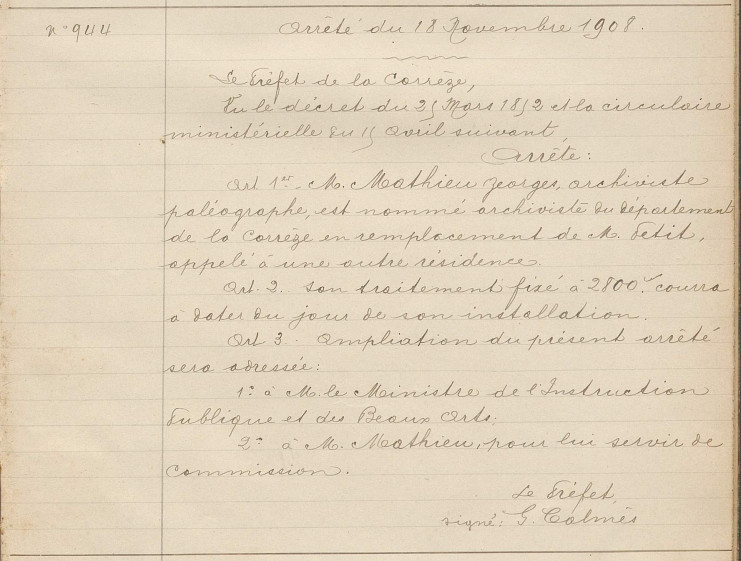 N° 944
Arrêté du 18 Novembre 1908.
Le Préfet de la Corrèze,
Vu le décret du 25 Mars 1852 et la circulaire
ministérielle du 15 Avril suivant,
Arrête:
Art 1er. M. Mathieu Georges, archiviste
paléographe, est nommé archiviste du département
de la Corrèze en remplacement de M. Petit,
appelé à une autre résidence.
Art. 2. Son traitement fixé à 2800f courra
à dater du jour de son installation.
Art 3. Ampliation du présent arrêté
sera adressée:
1° à M. le Ministre de l'Instruction
Publique et des Beaux Arts;
2° à M. Mathieu, pour lui servir de
commission.
Le Préfet,
signé: G. Calmès